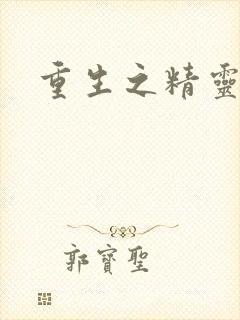 重生之精靈
郭寶聖